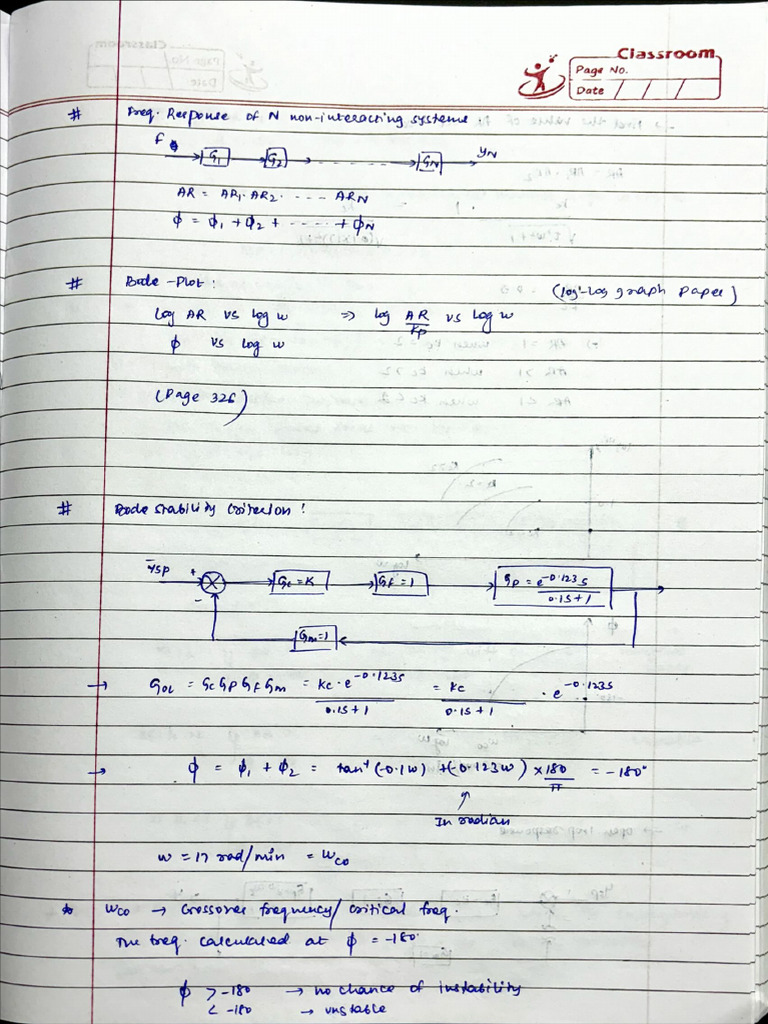 Classroom
Page No.
Date / / /
# Freq. Response of N non-interacting systems.
f G1 G2 - - - - - GN yN
AR = AR1 . AR2 . - - - - ARN
ϕ = ϕ1 + ϕ2 + ...... + ϕN
# Bode - Plot :
(log-log graph paper)
log AR vs log w ⇒ log AR/Kp vs log w
ϕ vs log w
(Page 326)
# Bode stability Criterion :
ȳsp + - Gc = K Gf = 1 Gp = e^-0.123s / 0.1s+1
Gm=1
→ GOL = Gc Gp Gf Gm = Kc . e^-0.123s / 0.1s+1 = Kc / 0.1s+1 . e^-0.123s
→ ϕ = ϕ1 + ϕ2 = tan⁻¹ (-0.1w) + (-0.123w) × 180/π = -180°
In radian
w = 17 rad/min = wco
* wco → Crossover frequency / critical freq.
The freq. calculated at ϕ = -180°
ϕ > -180 → no chance of instability
< -180 → unstable